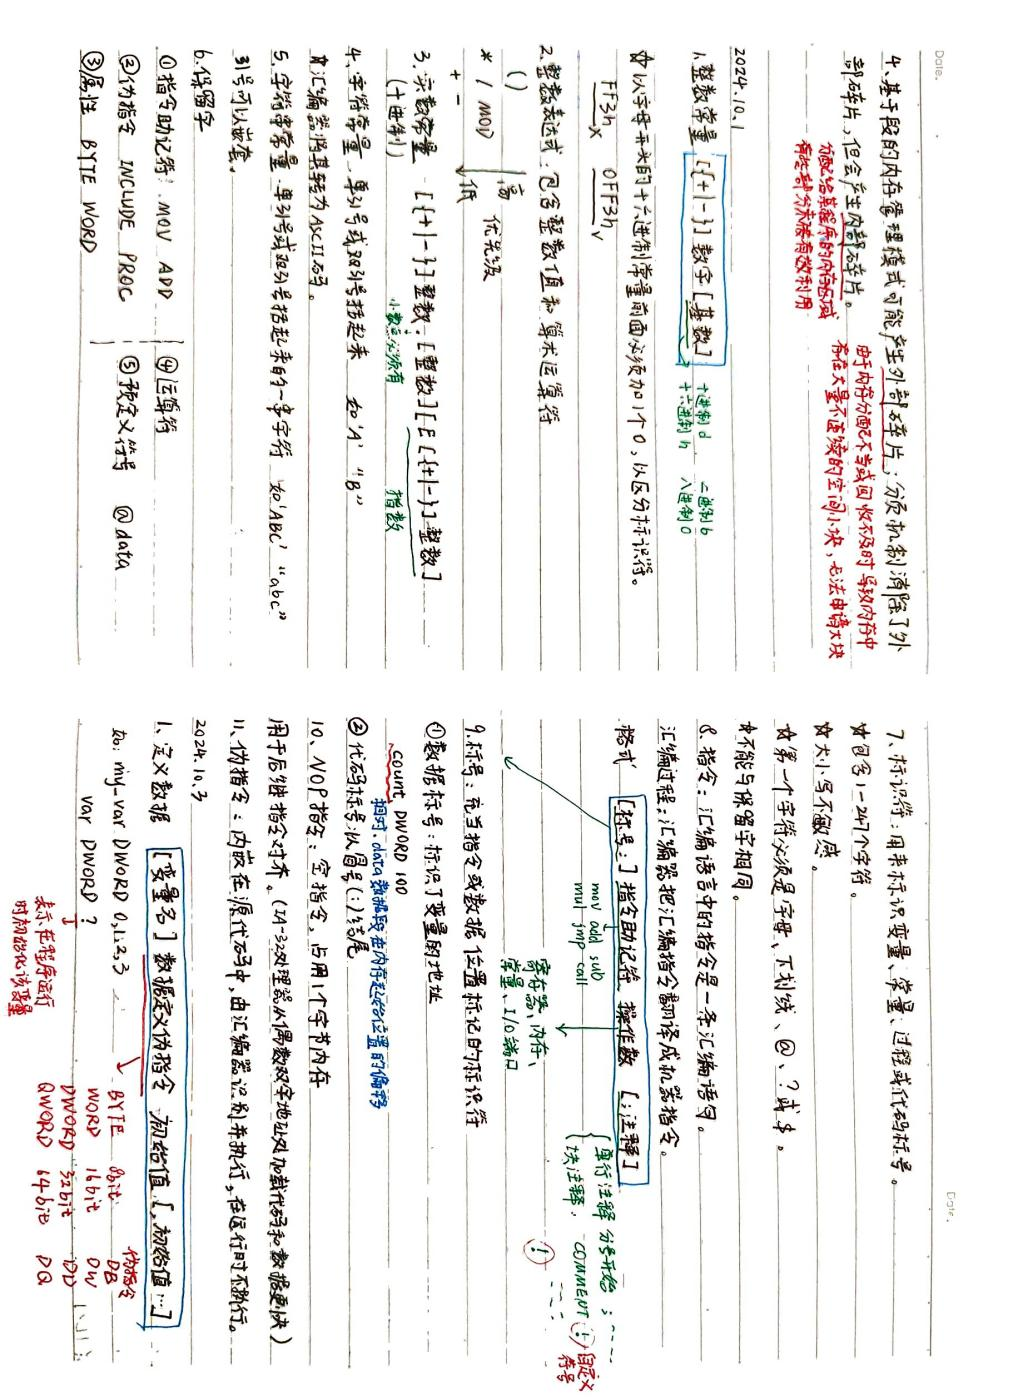 Date.
4.基于段的内存管理模式可能产生外部碎片,分页机制消除了外
部碎片,但会产生内部碎片。
分配给某程序的内存区域
有些部分未被有效利用
由于内存分配不当或回收不及时导致内存中
存在大量不连续的空间小块,无法申请大块
2024.10.1
1.整数常量 [{+|-}]数字[基数]
十进制d 二进制b
十六进制h 八进制o
☆以字母开头的十六进制常量前面必须加1个0,以区分标识符。
FF3h x 0FF3h √
2.整数表达式:包含整数值和算术运算符
()
* / MOD
+ -
高
低
优先级
3.实数常量 [{+|-}]整数.[整数][E[{+|-}]整数]
(十进制)
小数点必须有
指数
4.字符常量 单引号或双引号括起来 如'A' "B"
汇编器将其转为ASCII码。
5.字符串常量 单引号或双引号括起来的一串字符 如'ABC' "abc"
引号可以嵌套。
6.保留字
①指令助记符:MOV ADD ④运算符
②伪指令 INCLUDE PROC ⑤预定义符号 @data
③属性 BYTE WORD
Date.
7.标识符:用来标识变量、常量、过程或代码标号。
☆包含1-247个字符。
☆大小写不敏感。
☆第一个字符必须是字母、下划线、@、?或$。
☆不能与保留字相同。
8.指令:汇编语言中的指令是一条汇编语句。
汇编过程:汇编器把汇编指令翻译成机器指令。
格式 [标号:]指令助记符 操作数 [;注释]
mov add sub
mul jmp call
寄存器、内存、
常量、I/O端口
单行注释 分号开始 ;----
块注释. COMMENT ! 自定义
符号
!
9.标号:充当指令或数据位置标记的标识符
①数据标号:标识了变量的地址
count DWORD 100
相对.data数据段在内存起始位置的偏移
②代码标号:以冒号(:)结尾
10.NOP指令:空指令,占用1个字节内存
用于后继指令对齐。(IA-32处理器从偶数双字地址处加载代码和数据更快)
11.伪指令:内嵌在源代码中,由汇编器识别并执行,在运行时不执行。
2024.10.3
1.定义数据 [变量名]数据定义伪指令 初始值[,初始值…]
如:my-var DWORD 0,1,2,3
var DWORD ?
表示在程序运行
时初始化该变量
伪指令
BYTE 8bit DB
WORD 16bit DW
DWORD 32bit DD
QWORD 64-bit DQ